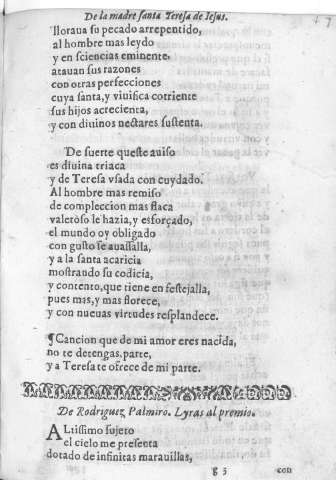 De la madre santa Teresa de Iesus.
lloraua su pecado arrepentido,
al hombre mas leydo
y en sciencias eminente,
atauan sus razones
con otras perfecciones
cuya santa, y viuifica corriente
sus hijos acrecienta,
y con diuinos nectares sustenta.
De suerte queste auiso
es diuina triaca
y de Teresa vsada con cuydado.
Al hombre mas remiso
de compleccion mas flaca
valeroso le hazia, y esforçado,
el mundo oy obligado
con gusto se auassalla,
y a la santa acaricia
mostrando su codicia,
y contento, que tiene en festejalla,
pues mas, y mas florece,
y con nueuas virtudes resplandece.
¶Cancion que de mi amor eres nacida,
no te detengas, parte,
y a Teresa te ofrece de mi parte.
De Rodriguez Palmiro. Lyras al premio.
ALtissimo sujeto
el cielo me presenta
dotado de infinitas marauillas,
g 5 con